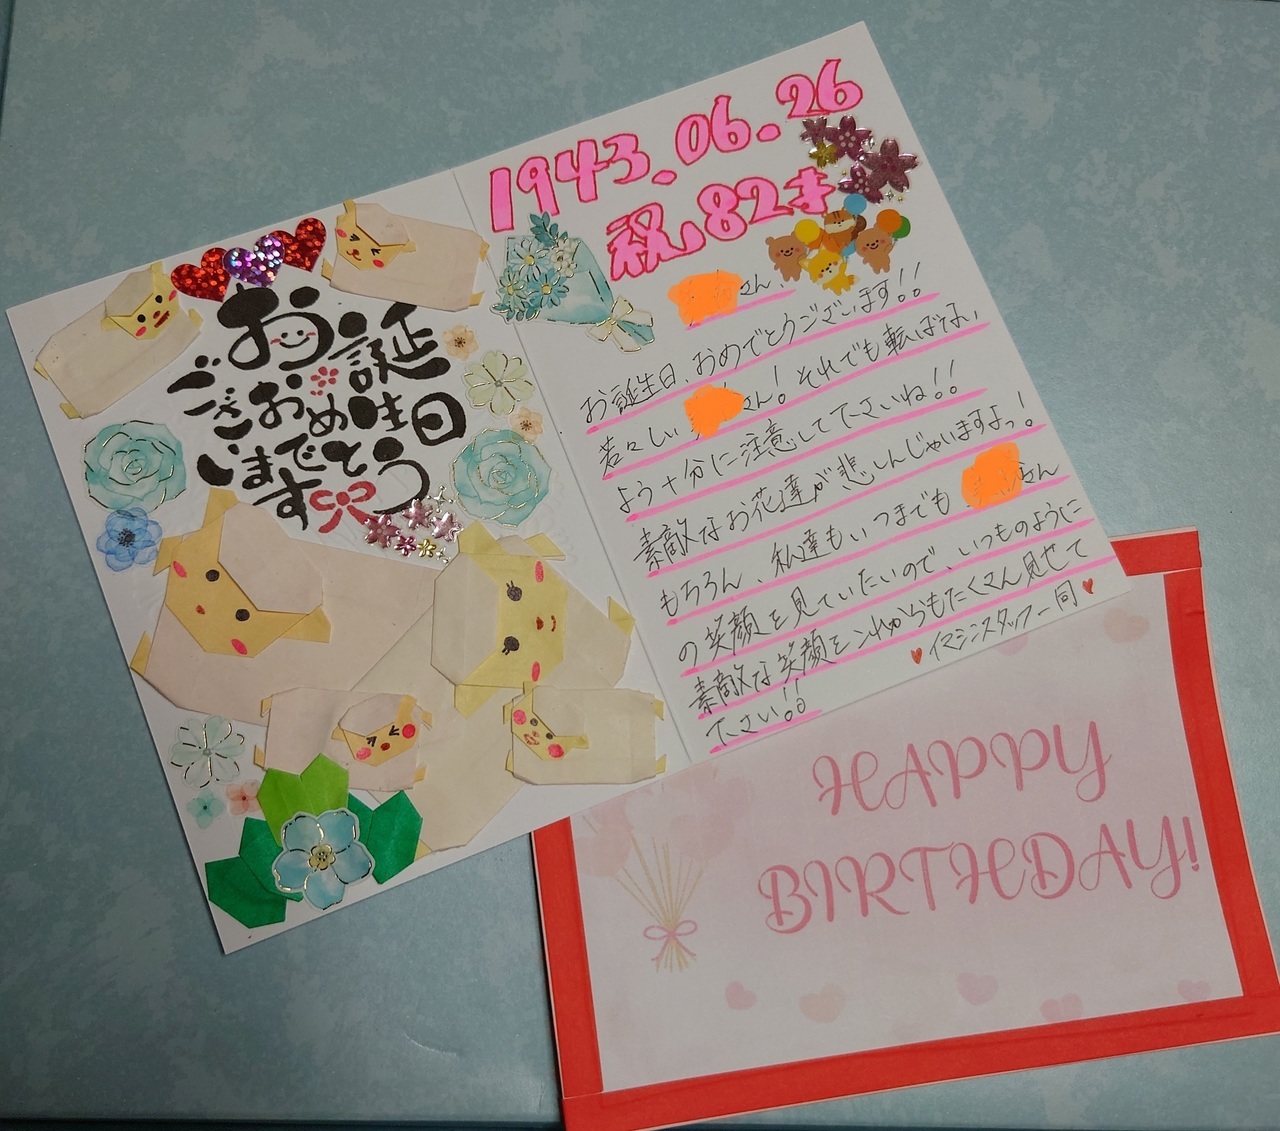 お誕生日
おめでとう
ございます
1943.06.26
祝82才
さん、
お誕生日、おめでとうございます!!
若々しい さん!それでも転ばない
よう十分に注意して下さいね!!
素敵なお花達が悲しんじゃいますよっ!
もちろん、私達もいつまでも さん
の笑顔を見ていたいので、いつものように
素敵な笑顔をこれからもたくさん見せて
下さい!!
イマジンスタッフ一同
HAPPY
BIRTHDAY!